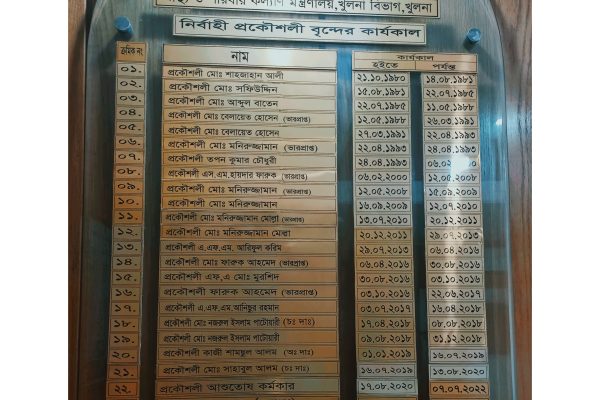 ও পরিবার কল্যাণ মন্ত্রণালয়, খুলনা বিভাগ, খুলনা
নির্বাহী প্রকৌশলী বৃন্দের কার্যকাল
ক্রমিক নং নাম কার্যকাল
হইতে পর্যন্ত
০১. প্রকৌশলী মোঃ শাহজাহান আলী ২১.১০.১৯৮০ ১৪.০৮.১৯৮১
০২. প্রকৌশলী মোঃ সফিউদ্দিন ১৫.০৮.১৯৮১ ২২.০৭.১৯৮৫
০৩. প্রকৌশলী মোঃ আব্দুল বাতেন ২২.০৭.১৯৮৫ ১১.০৫.১৯৮৮
০৪. প্রকৌশলী মোঃ বেলায়েত হোসেন (ভারপ্রাপ্ত) ২২.০৫.১৯৮৮ ২৬.০৩.১৯৯১
০৫. প্রকৌশলী মোঃ বেলায়েত হোসেন ২৭.০৩.১৯৯১ ২২.০৪.১৯৯৩
০৬. প্রকৌশলী মোঃ মনিরুজ্জামান (ভারপ্রাপ্ত) ২২.০৪.১৯৯৩ ২৪.০৪.১৯৯৩
০৭. প্রকৌশলী তপন কুমার চৌধুরী ২৪.০৪.১৯৯৩
০৮. প্রকৌশলী এস.এম.হায়দার ফারুক (ভারপ্রাপ্ত) ০৬.০২.২০০০ ১২.০৫.২০০৮
০৯. প্রকৌশলী মোঃ মনিরুজ্জামান (ভারপ্রাপ্ত) ১২.০৫.২০০৮ ১৫.০৯.২০০৯
১০. প্রকৌশলী মোঃ মনিরুজ্জামান ১৬.০৯.২০০৯ ১২.০৭.২০১০
১১. প্রকৌশলী মোঃ মনিরুজ্জামান মোল্লা (ভারপ্রাপ্ত) ১৩.০৭.২০১০ ২০.১২.২০১১
১২. প্রকৌশলী মোঃ মনিরুজ্জামান মোল্লা ২০.১২.২০১১ ২৯.০৭.২০১৩
১৩. প্রকৌশলী এ.এফ.এম. আরিফুল করিম ২৯.০৭.২০১৩ ০৬.০৪.২০১৬
১৪. প্রকৌশলী মোঃ ফারুক আহমেদ (ভারপ্রাপ্ত) ০৬.০৪.২০১৬ ৩০.০৮.২০১৬
১৫. প্রকৌশলী এফ.এ মোঃ মুরশিদ ৩০.০৮.২০১৬ ০৩.১০.২০১৬
১৬. প্রকৌশলী ফারুক আহমেদ (ভারপ্রাপ্ত) ০৩.১০.২০১৬ ২২.০৬.২০১৭
১৭. প্রকৌশলী এ.এফ.এম.আনিছুর রহমান ০৩.০৭.২০১৭ ১৬.০৪.২০১৮
১৮. প্রকৌশলী মোঃ নজরুল ইসলাম পাটোয়ারী (চঃ দাঃ) ১৭.০৪.২০১৮ ০৮.০৮.২০১৮
১৯. প্রকৌশলী মোঃ নজরুল ইসলাম পাটোয়ারী ০৯.০৮.২০১৮ ৩১.১২.২০১৮
২০. প্রকৌশলী কাজী শামছুল আলম (অঃ দাঃ) ০১.০১.২০১৯ ১৬.০৭.২০১৯
২১. প্রকৌশলী মোঃ সাহাবুল আলম (চঃ দাঃ) ১৬.০৭.২০১৯ ১৬.০৮.২০২০
২২. প্রকৌশলী আশুতোষ কর্মকার ১৭.০৮.২০২০ ০৭.০৭.২০২২